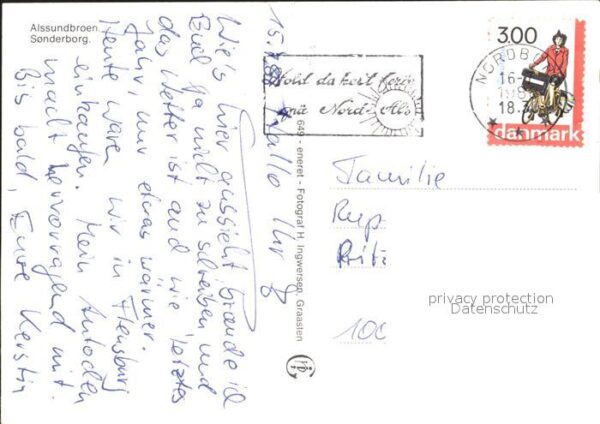 Alssundbroen.
Sønderborg.
15.7.8
Hallo Ihr 8
Wie's hier aussieht, brauche ich
Euch ja nicht zu schreiben und
das Wetter ist auch wie letztes
Jahr, nur etwas wärmer.
Heute waren wir in Flensburg
einkaufen. Mein Autochen
macht hervorragend mit.
Bis bald, Eure Kerstin
649 - eneret - Fotograf H. Ingwersen, Graasten
Hold da helt ferie
på Nord-Als
NORDB
16-
198
18.
3.00
danmark
Familie
Rup
Fritz
100
privacy protection
Datenschutz